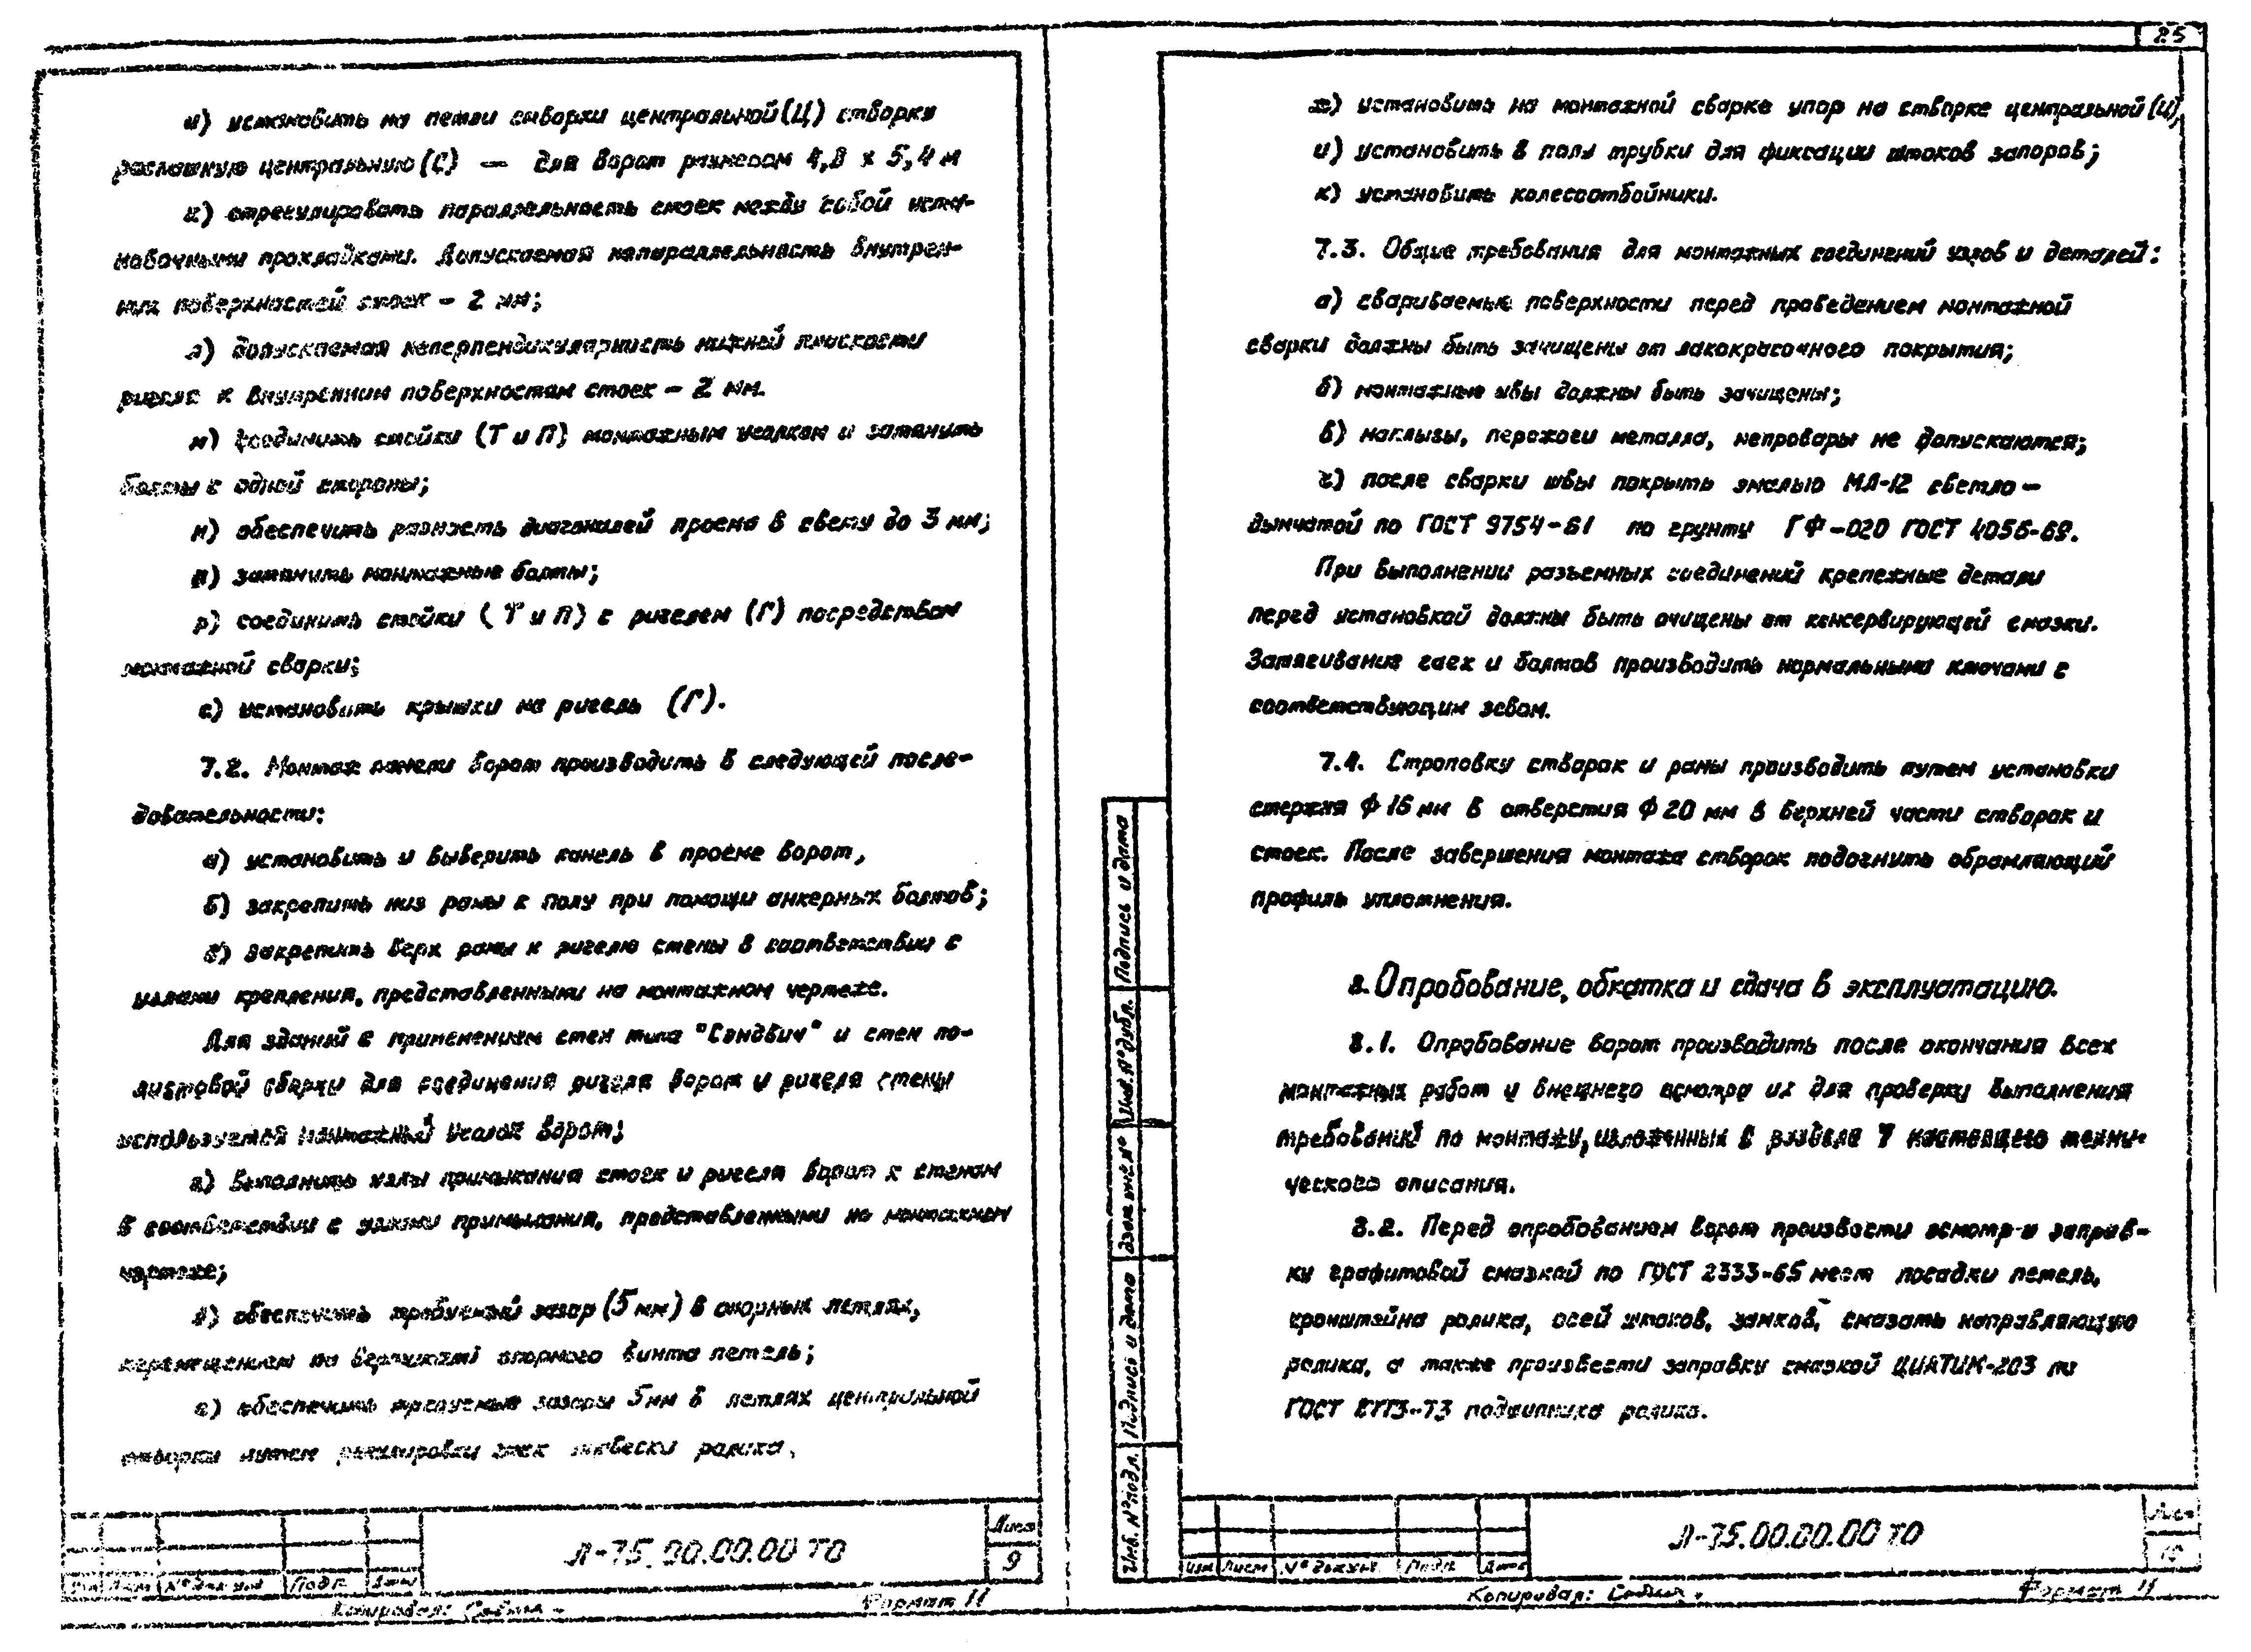 и) установить на петли створки центральной (Ц) створку
распашную центральную (С) — для ворот размером 4,8 х 5,4 м
к) отрегулировать параллельность стоек между собой уста-
новочными прокладками. Допускаемая непараллельность внутрен-
них поверхностей стоек – 2 мм;
л) допускаемая неперпендикулярность нижней плоскости
ригеля к внутренним поверхностям стоек – 2 мм.
м) соединить стойки (Т и П) монтажным уголком и затянуть
болты с одной стороны;
н) обеспечить разность диагоналей проема в свету до 3 мм;
п) затянуть монтажные болты;
р) соединить стойки (Т и П) с ригелем (Г) посредством
монтажной сварки;
с) установить крышки на ригель (Г).
7.2. Монтаж панели ворот производить в следующей после-
довательности:
а) установить и выверить панель в проеме ворот,
б) закрепить низ рамы к полу при помощи анкерных болтов;
в) закрепить верх рамы к ригелю стены в соответствии с
узлами крепления, представленными на монтажном чертеже.
Для зданий с применением стен типа "Сэндвич" и стен по-
листовой сборки для соединения ригеля ворот и ригеля стены
используется монтажный уголок ворот;
г) выполнить узлы примыкания стоек и ригеля ворот к стенам
в соответствии с узлами примыкания, представленными на монтажном
чертеже;
д) обеспечить требуемый зазор (5 мм) в опорных петлях,
перемещением по вертикали опорного винта петель;
е) обеспечить требуемые зазоры 5 мм в петлях центральной
створки путем регулировки гаек подвески ролика.
Л-75.00.00.00 ТО
Лист
9
Изм Лист № докум Подп. Дата
Копировал:
Формат 11
25
ж) установить на монтажной сварке упор на створке центральной (Ц),
и) установить в полу трубки для фиксации штоков запоров;
к) установить колесоотбойники.
7.3. Общие требования для монтажных соединений узлов и деталей:
а) свариваемые поверхности перед проведением монтажной
сварки должны быть зачищены от лакокрасочного покрытия;
б) монтажные швы должны быть зачищены;
в) наплывы, пережоги металла, непровары не допускаются;
г) после сварки швы покрыть эмалью МЛ-12 светло –
дымчатой по ГОСТ 9754-61 по грунту ГФ-020 ГОСТ 4056-69.
При выполнении разъемных соединений крепежные детали
перед установкой должны быть очищены от консервирующей смазки.
Затягивание гаек и болтов производить нормальными ключами с
соответствующим зевом.
7.4. Строповку створок и рамы производить путем установки
стержня Ф 16 мм в отверстия Ф 20 мм в верхней части створок и
стоек. После завершения монтажа створок подогнуть обрамляющий
профиль уплотнения.
8. Опробование, обкатка и сдача в эксплуатацию.
8.1. Опробование ворот производить после окончания всех
монтажных работ и внешнего осмотра их для проверки выполнения
требований по монтажу, изложенных в разделе 7 настоящего техни-
ческого описания.
8.2. Перед опробованием ворот произвести осмотр и заправ-
ку графитовой смазкой по ГОСТ 2333-65 мест посадки петель,
кронштейна ролика, осей штоков, замков, смазать направляющую
ролика, а также произвести заправку смазкой ЦИАТИМ-203 по
ГОСТ 8773-73 подшипника ролика.
Подпись и дата
Инв. № дубл.
Взам. инв. №
Подпись и дата
Инв. № подл.
Л-75.00.00.00 ТО
Лист
10
Изм Лист № докум. Подп. Дата
Копировал:
Формат 11